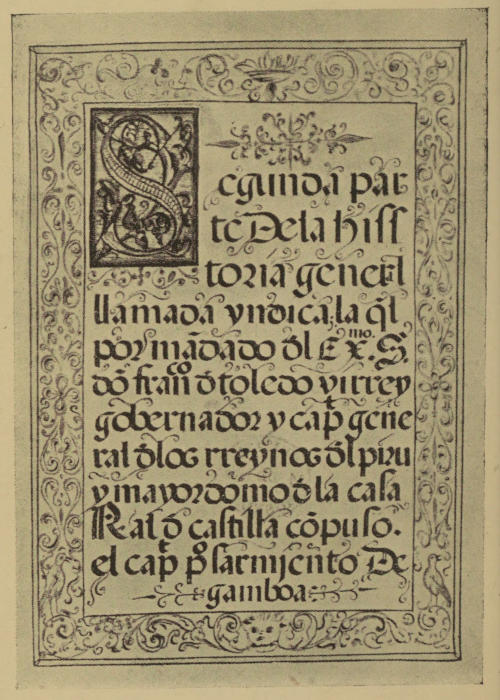 Segunda par
te Dela hiss
toria generl
llamada yndica, la ql
por mādado dl Exmo. S.
dō franco d toledo virrey
gobernador y cap gene
ral d los rreynos dl piru
y mayordomo d la casa
Real d castilla cōpuso.
el cap po sarmjento De
gamboa